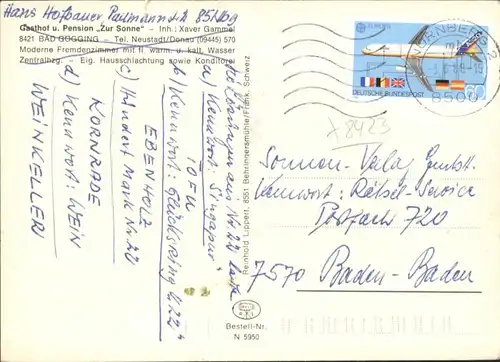 Hans Hofbauer
Gasthof u. Pension „Zur Sonne" – Inh.: Xaver Gammel
8421 BAD GÖGGING – Tel. Neustadt/Donau (09445) 570
Moderne Fremdenzimmer mit fl. warm. u. kalt. Wasser
Zentralhzg. – Eig. Hausschlachtung sowie Konditorei
aus Nr. 22
a) Kennwort: „Singapur"
b) Kennwort: Glücksring Nr. 22"
EBENHOLZ
c) Hundert Mark Nr. 22
KORNRADE
d) Kennwort: WEIN
WEINKELLEREI
Reinhold Lippert, 8551 Behringersmühle/Fränk. Schweiz
EUROPA
DEUTSCHE BUNDESPOST
60
NÜRNBERG 2
8500
+ 8423
Sonnen-Verlag GmbH.
Kennwort: Rätsel-Service
Postfach 720
7570 Baden-Baden
Bestell-Nr.
N 5950